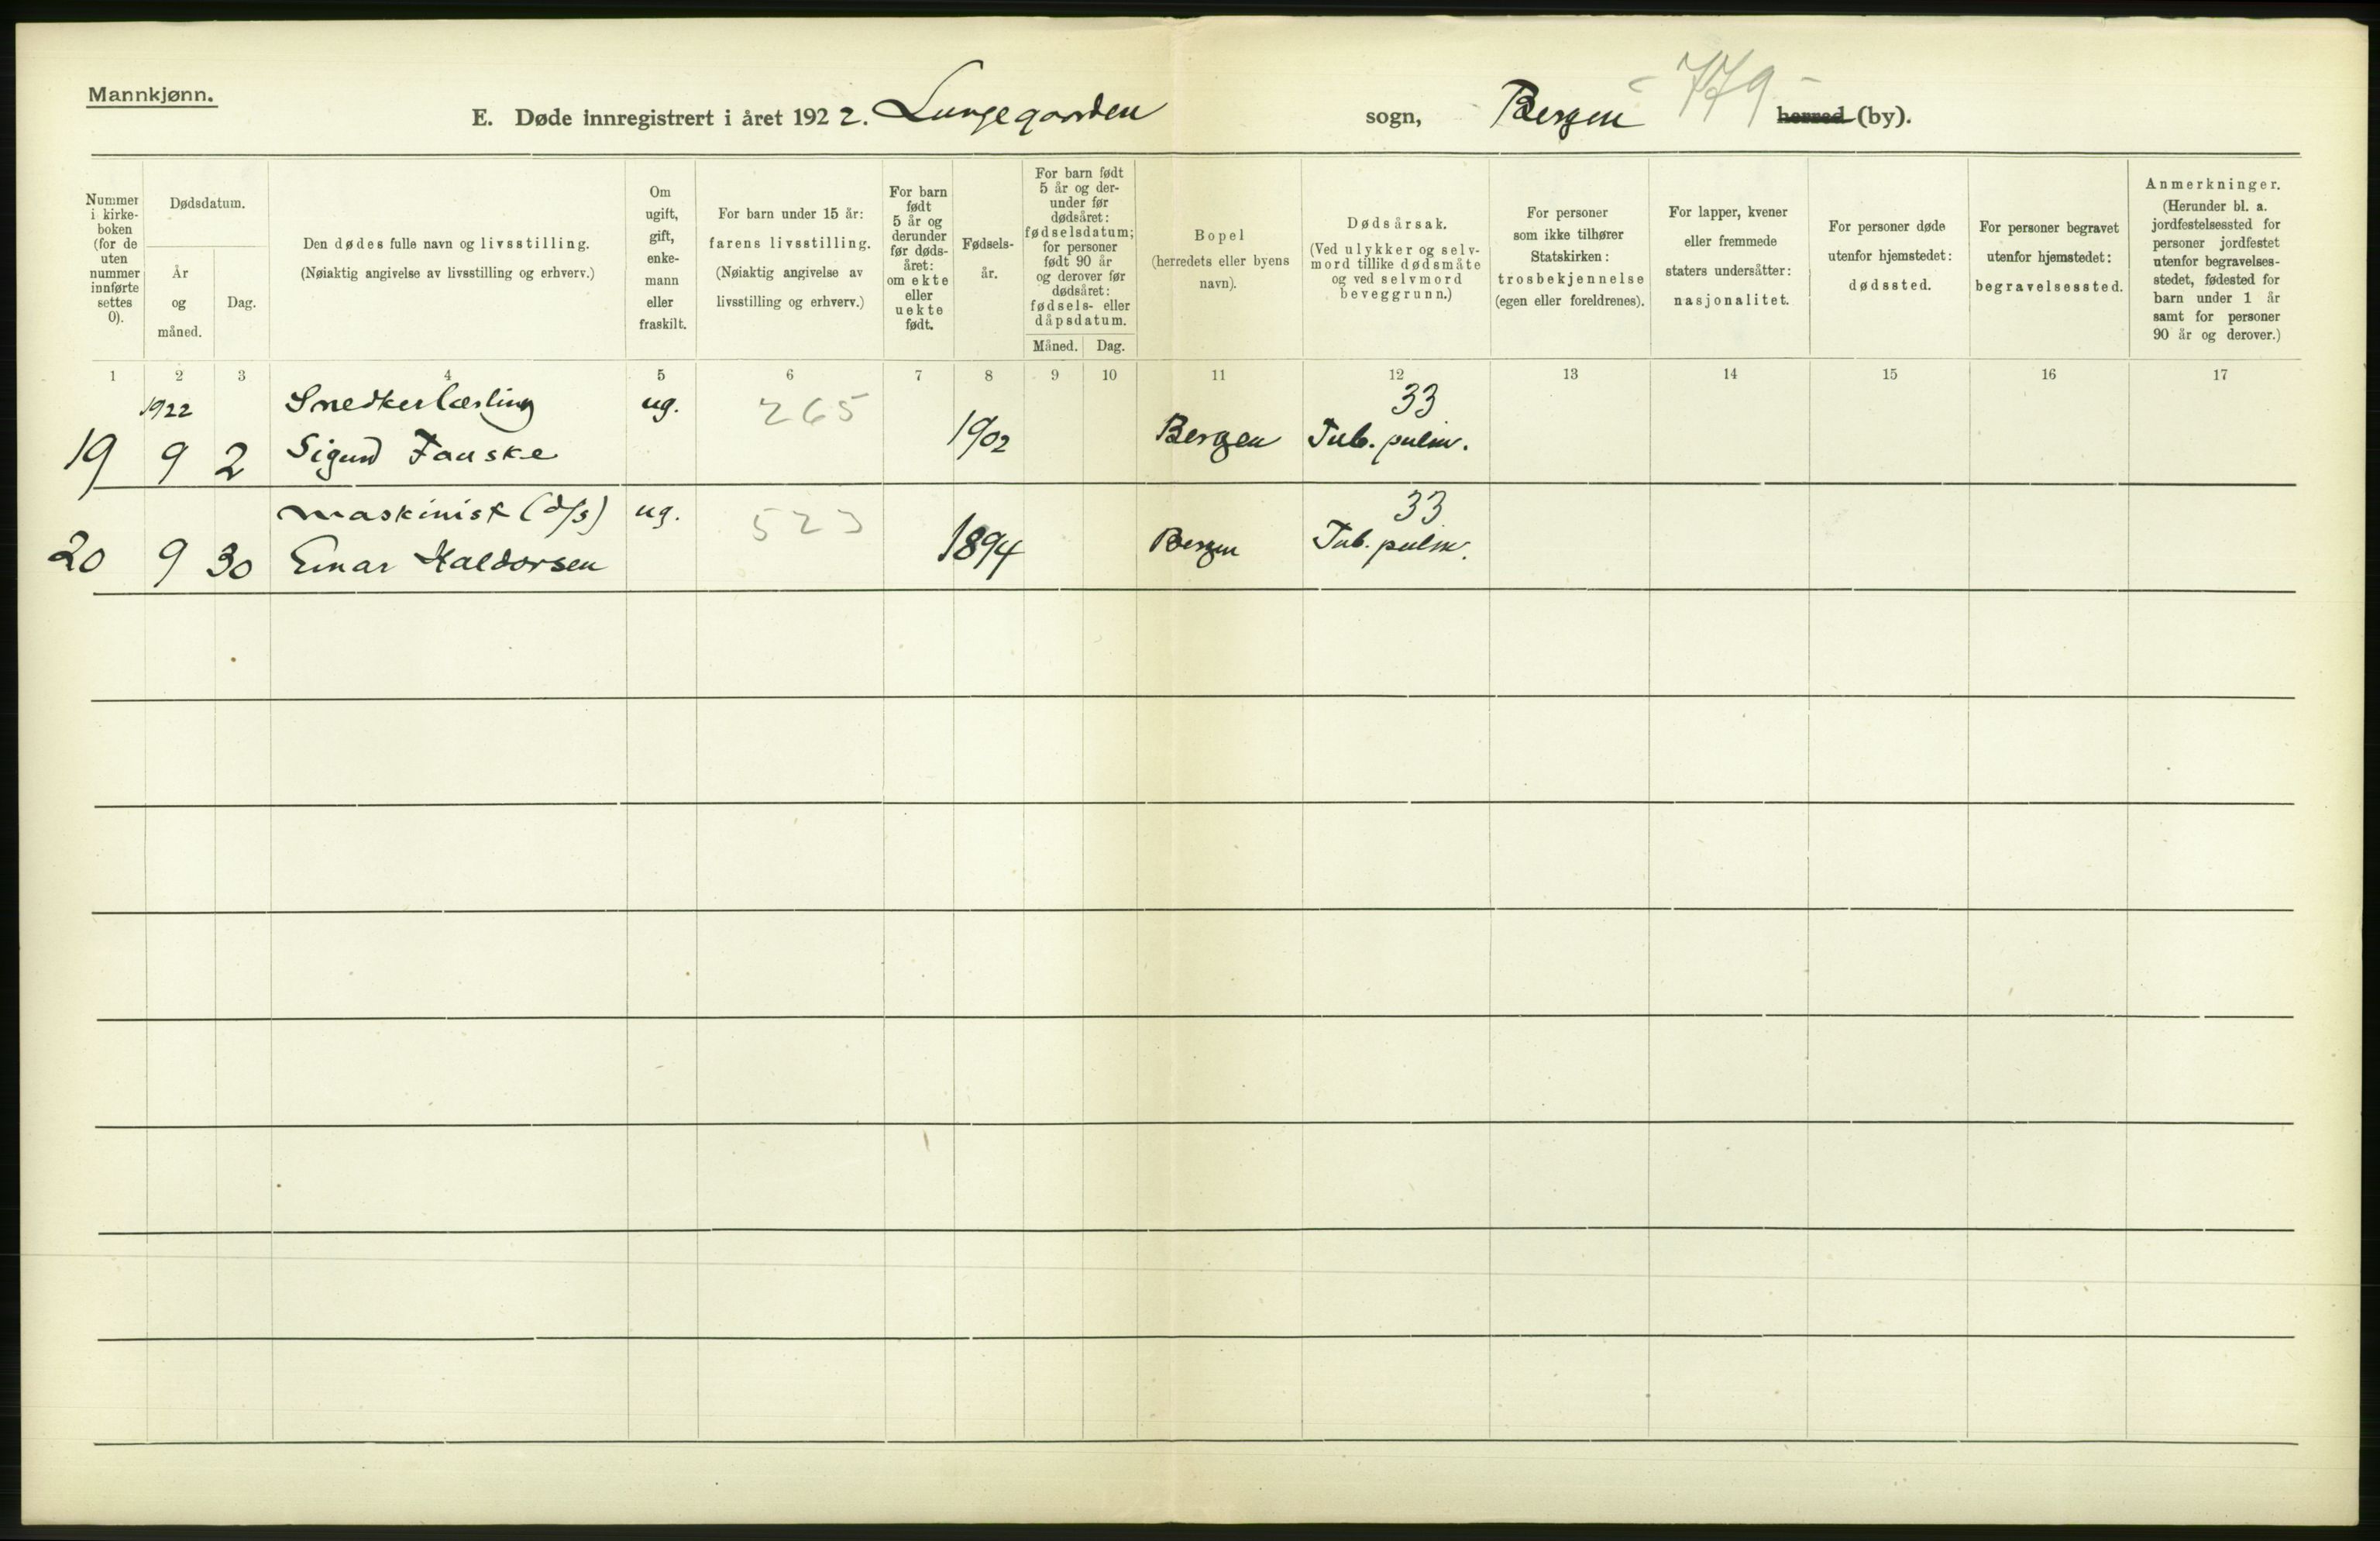 Mannkjønn.
E. Døde innregistrert i året 1922. Lungegaarden sogn, Bergen herred (by).
- 779 -
Nummer i kirkeboken (for de uten nummer innførte settes 0).
Dødsdatum.
År og måned.
Dag.
Den dødes fulle navn og livsstilling.
(Nøiaktig angivelse av livsstilling og erhverv.)
Om ugift, gift, enkemann eller fraskilt.
For barn under 15 år:
farens livsstilling.
(Nøiaktig angivelse av livsstilling og erhverv.)
For barn født 5 år og derunder før dødsåret: om ekte eller uekte født.
Fødselsår.
For barn født 5 år og derunder før dødsåret: fødselsdatum; for personer født 90 år og derover før dødsåret: fødsels- eller dåpsdatum.
Måned. Dag.
Bopel
(herredets eller byens navn).
Dødsårsak.
(Ved ulykker og selvmord tillike dødsmåte og ved selvmord beveggrunn.)
For personer som ikke tilhører Statskirken: trosbekjennelse (egen eller foreldrenes).
For lapper, kvener eller fremmede staters undersåtter: nasjonalitet.
For personer døde utenfor hjemstedet: dødssted.
For personer begravet utenfor hjemstedet: begravelsessted.
Anmerkninger.
(Herunder bl. a. jordfestelsessted for personer jordfestet utenfor begravelsesstedet, fødested for barn under 1 år samt for personer 90 år og derover.)
1 2 3 4 5 6 7 8 9 10 11 12 13 14 15 16 17
1922 Snedkerlærling ug. 265 33
19 9 2 Sigurd Fauske 1902 Bergen Tub. pulm.
maskinist (d/s) ug. 523 33
20 9 30 Einar Haldorsen 1894 Bergen Tub. pulm.